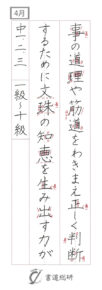 4月
事の道理や筋道をわきまえ正しく判断
するために文珠の知恵を生み出す力が
中一二三　一級～十級
書道総研